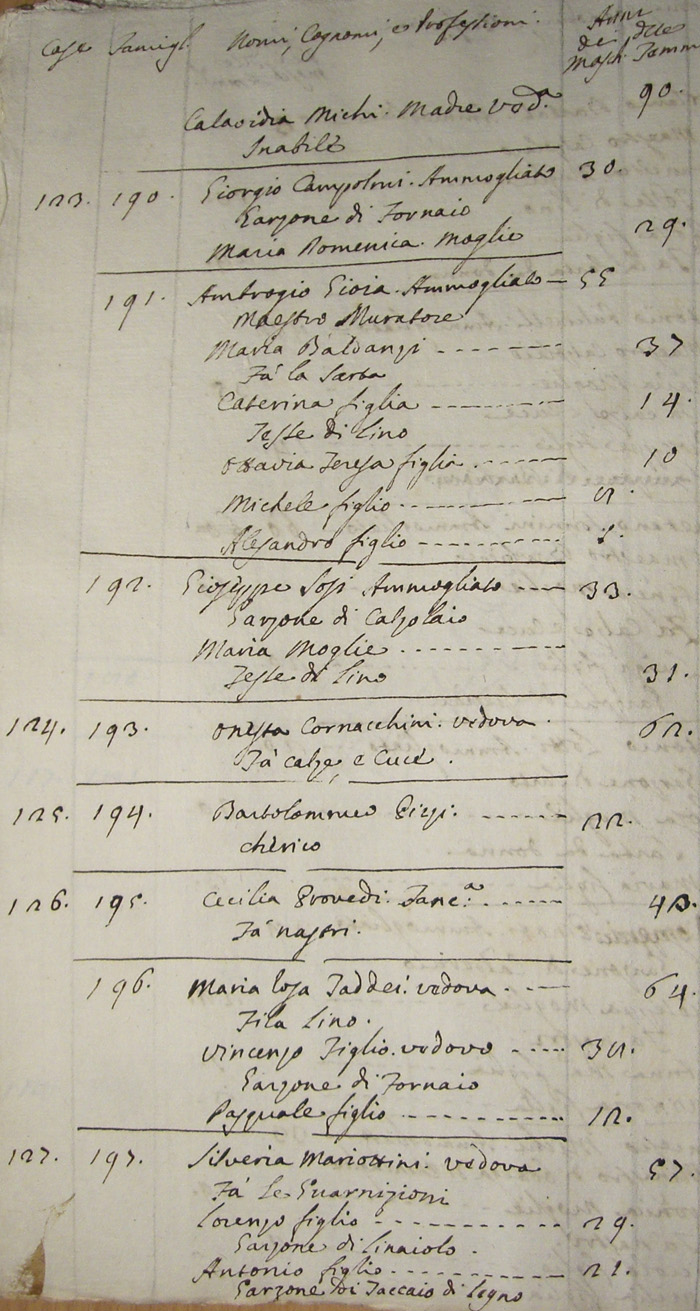 Case Famigl. Nomi, Cognomi, e Professioni. Anni
de' delle
Masch. Femm.
Calavidia Nichi. Madre Vod.ª 90.
Inabile
123. 190. Giorgio Campolmi. Ammogliato 30.
Garzone di Fornaio
Maria Domenica. Moglie 29.
191. Ambrogio Gioia. Ammogliato 55
Maestro Muratore
Maria Baldanzi 37
Fà la Sarta
Caterina figlia 14.
Tesse di Lino
Ottavia Teresa figlia. 10
Michele figlio
Alesandro figlio
192. Giuseppe Sosi Ammogliato 33.
Garzone di Calzolaio
Maria Moglie
Tesse di Lino 31.
124. 193. Onesta Cornacchini. vedova. 62.
Fà calze, e Cuce.
125. 194. Bartolommeo Gizzi. 22.
cherico
126. 195. Cecilia Provedi. Fanc.ª 43.
Fà nastri.
196. Maria Rosa Taddei. vedova. 64.
Fila Lino.
Vincenzo Figlio. vedovo
Garzone di Fornaio
Pasquale figlio 12.
127. 197. Silveria Mariottini. vedova 57.
Fà le Guarnizioni
Lorenzo figlio 29.
Garzone di Linaiolo.
Antonio figlio 21.
Garzone di Taccaio di Legno